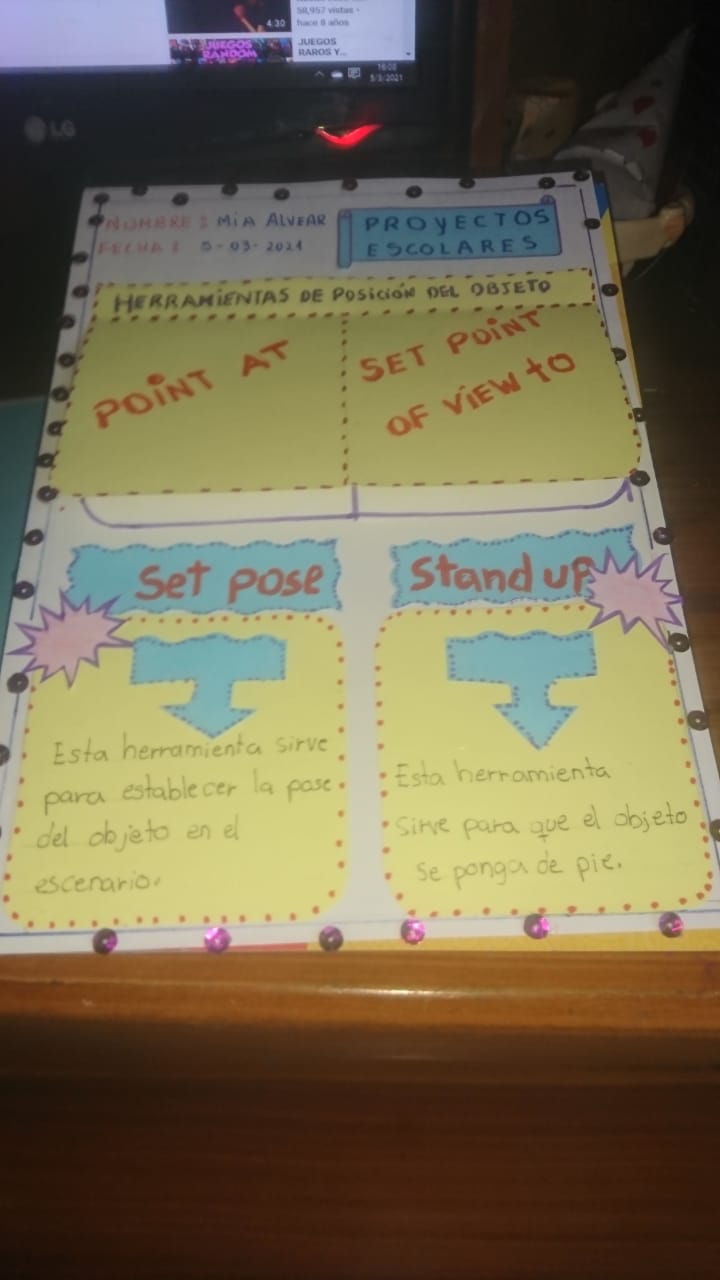 4:30
58,957 vistas •
hace 8 años
JUEGOS
RANDOM
JUEGOS
RAROS Y...
16:08
5/3/2021
LG
NOMBRE: MIA ALVEAR
FECHA: 5-03-2021
PROYECTOS
ESCOLARES
HERRAMIENTAS DE POSICIÓN DEL OBJETO
POINT AT
SET POINT
OF VIEW TO
Set pose
Stand up
Esta herramienta sirve
para establecer la pose
del objeto en el
escenario.
Esta herramienta
sirve para que el objeto
se ponga de pie.